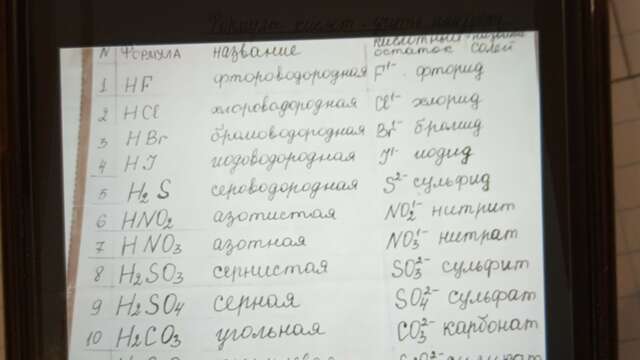 N Формула название кислотный остаток солей
1 HF фтороводородная F¹⁻ - фторид
2 HCl хлороводородная Cl¹⁻ - хлорид
3 HBr бромоводородная Br¹⁻ - бромид
4 HJ иодоводородная J¹⁻ - иодид
5 H₂S сероводородная S²⁻ сульфид
6 HNO₂ азотистая NO₂¹⁻ нитрит
7 HNO₃ азотная NO₃¹⁻ нитрат
8 H₂SO₃ сернистая SO₃²⁻ сульфит
9 H₂SO₄ серная SO₄²⁻ сульфат
10 H₂CO₃ угольная CO₃²⁻ карбонат